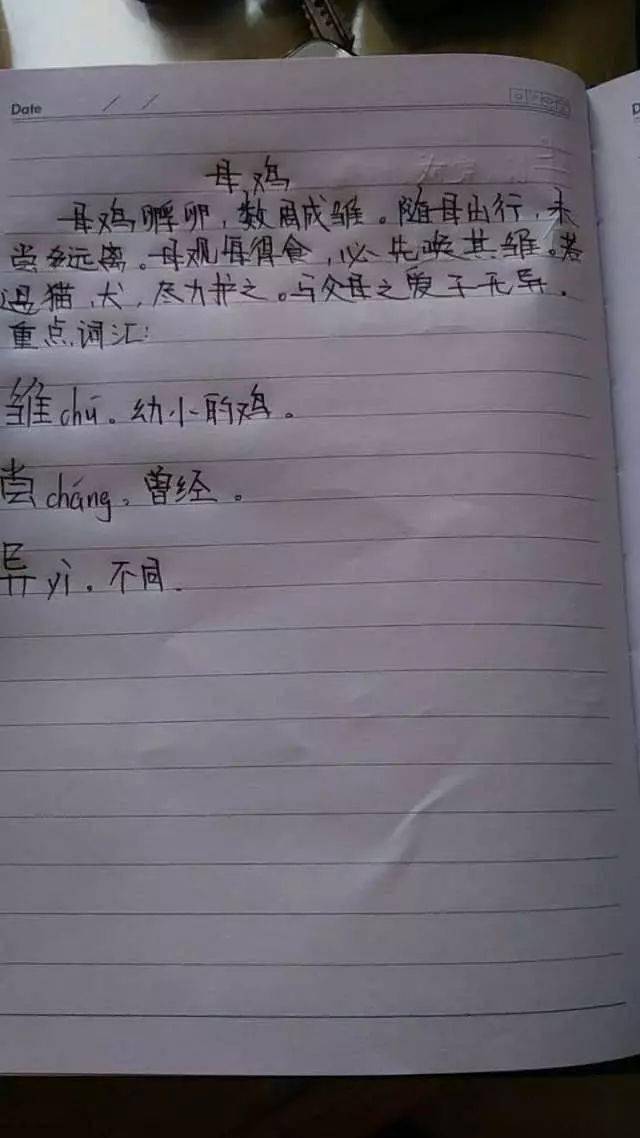 Date / /
母鸡
母鸡孵卵,数周成雏。随母出行,未
尝远离。母鸡每得食,必先唤其雏。若
遇猫、犬,尽力护之。与父母之爱子无异。
重点词汇:
雏 chú。幼小的鸡。
尝 cháng。曾经。
异 yì。不同.